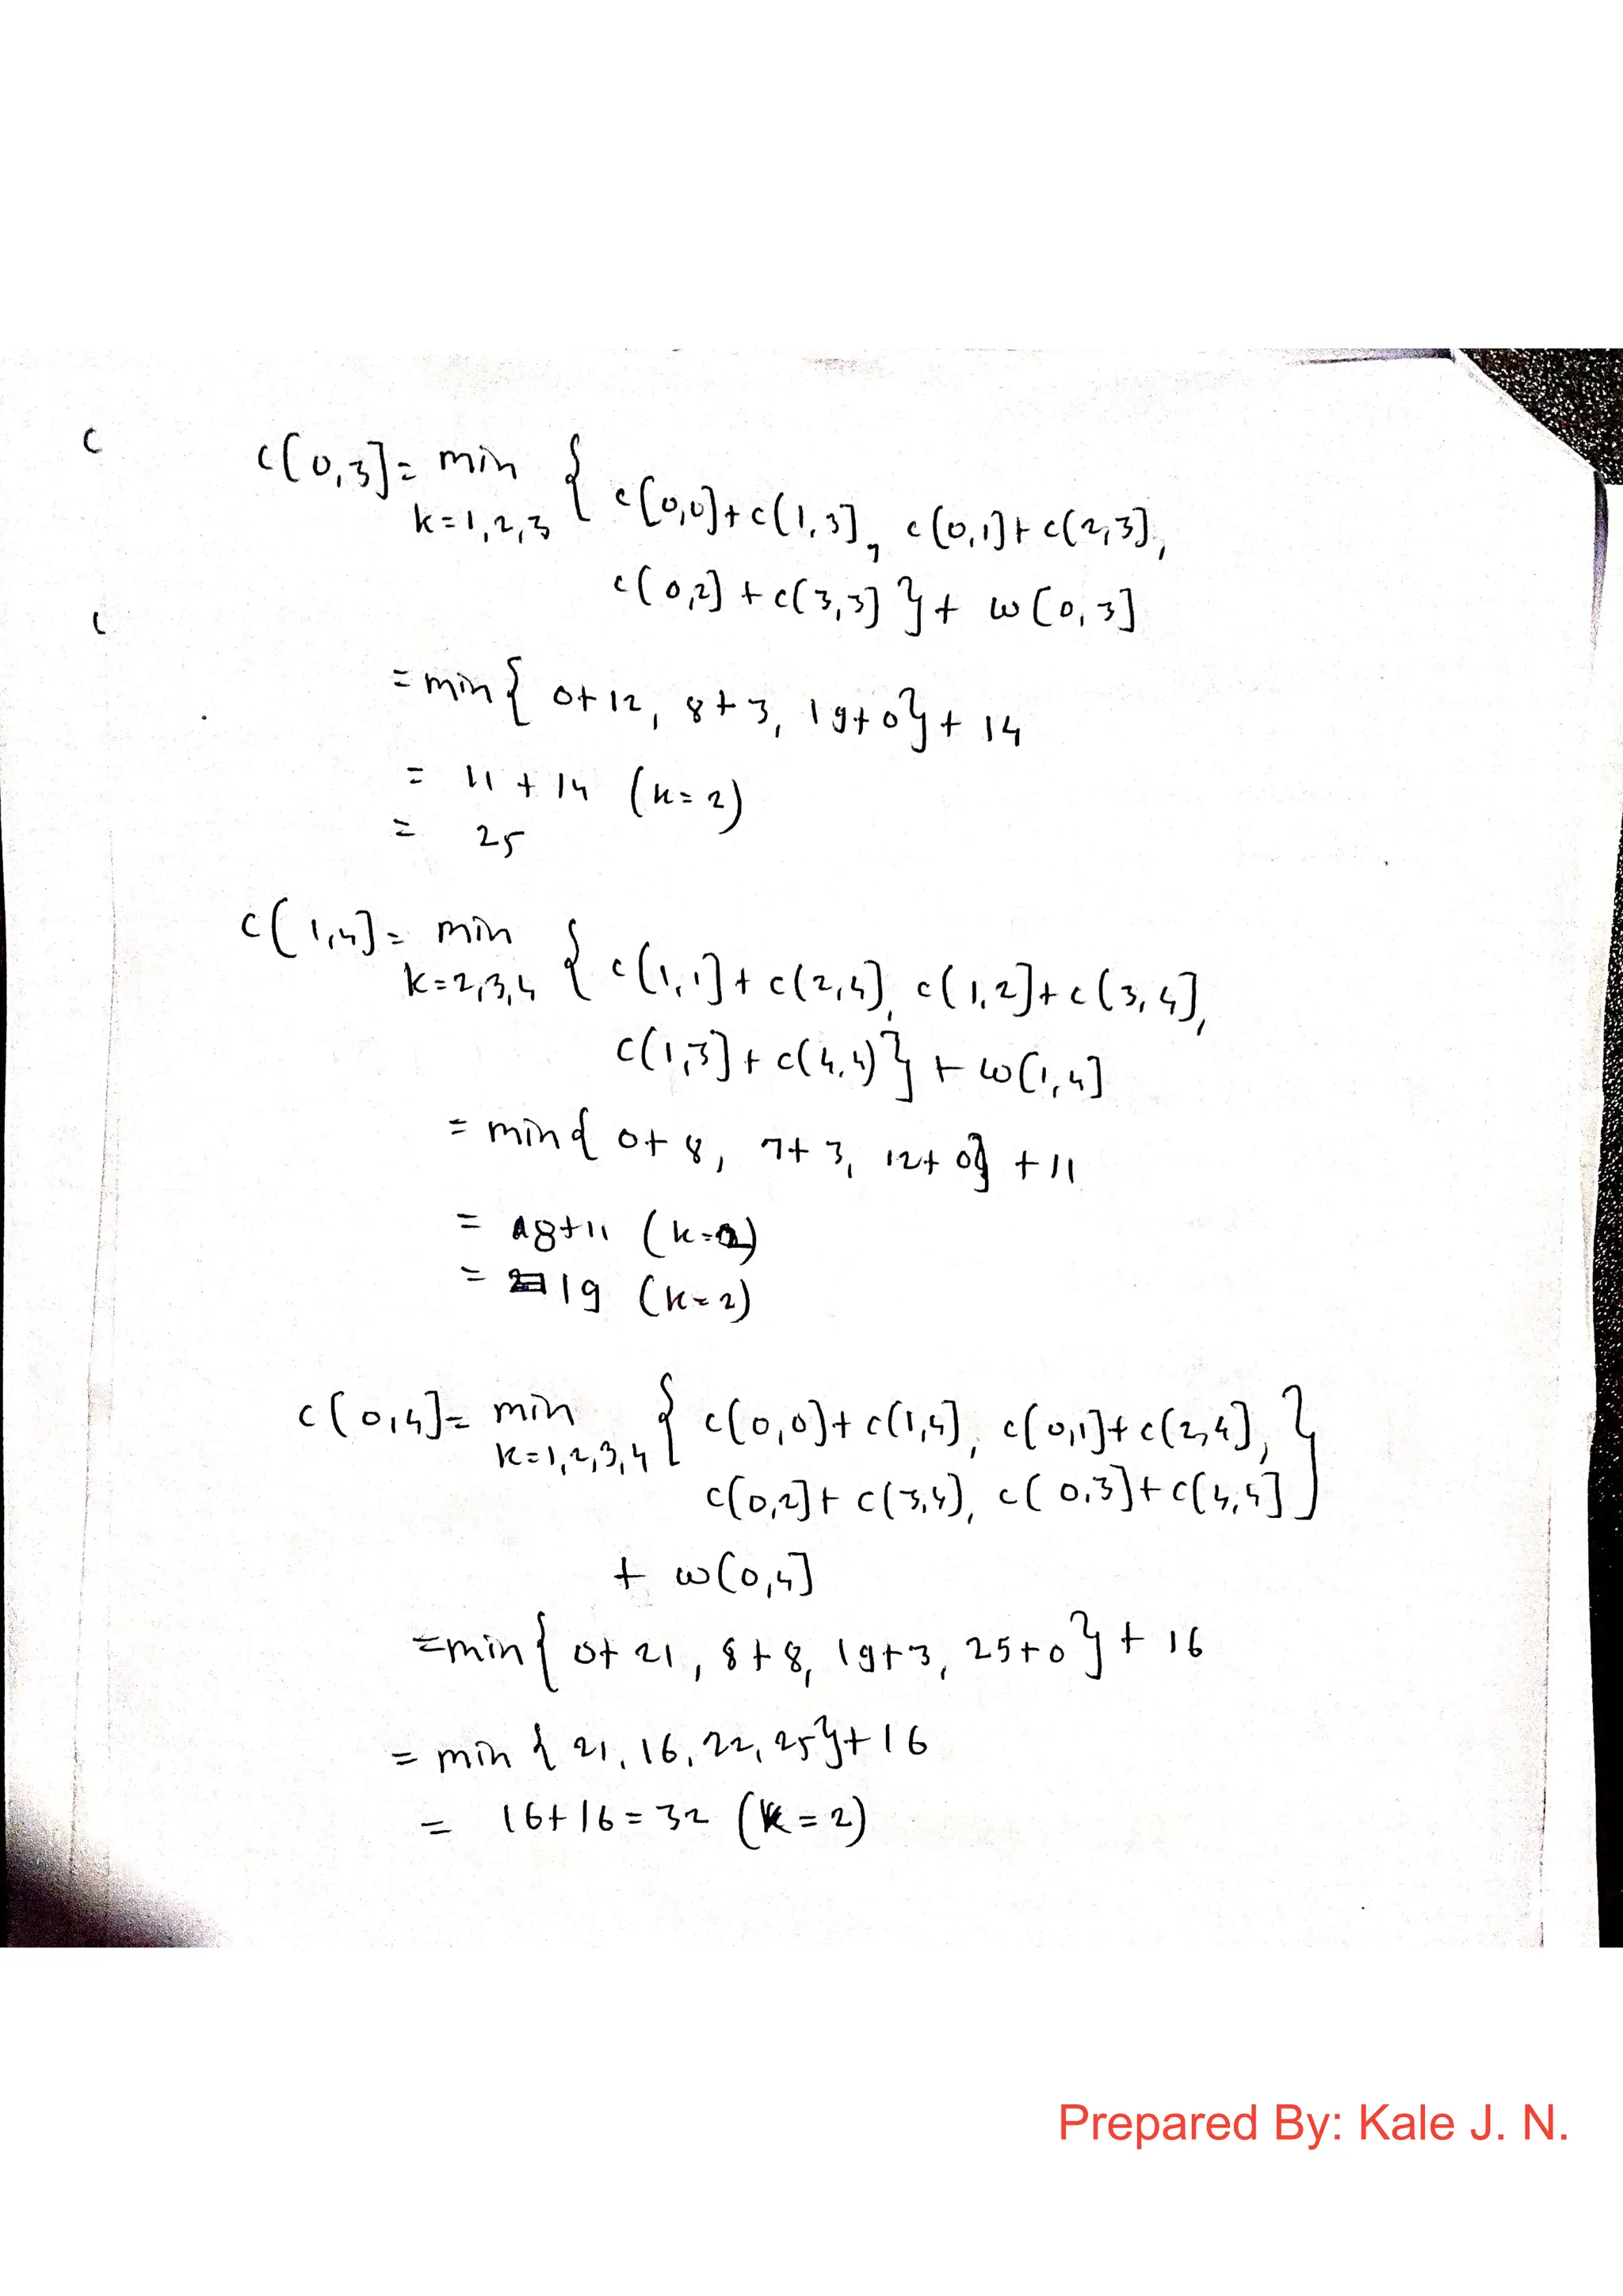 c
c[0,3]= min { c[0,0]+c[1,3], c[0,1]+c[2,3],
k=1,2,3
c[0,2]+c[3,3]}+ w[0,3]
(
=min{ 0+12, 8+3, 19+0}+ 14
= 11 + 14 (k=2)
= 25
c[1,4]= min { c[1,1]+c[2,4], c[1,2]+c[3,4],
k=2,3,4
c[1,3]+c[4,4)}+ w[1,4]
= min{ 0+8, 7+3, 12+0} +11
= 8+11 (k=2)
= 19 (k=2)
c[0,4]= min { c[0,0]+c[1,4], c[0,1]+c[2,4], }
k=1,2,3,4
c[0,2]+c[3,4], c[0,3]+c[4,4]
+ w[0,4]
=min{ 0+21, 8+8, 19+3, 25+0}+ 16
= min { 21, 16, 22, 25}+16
= 16+16=32 (k=2)
Prepared By: Kale J. N.